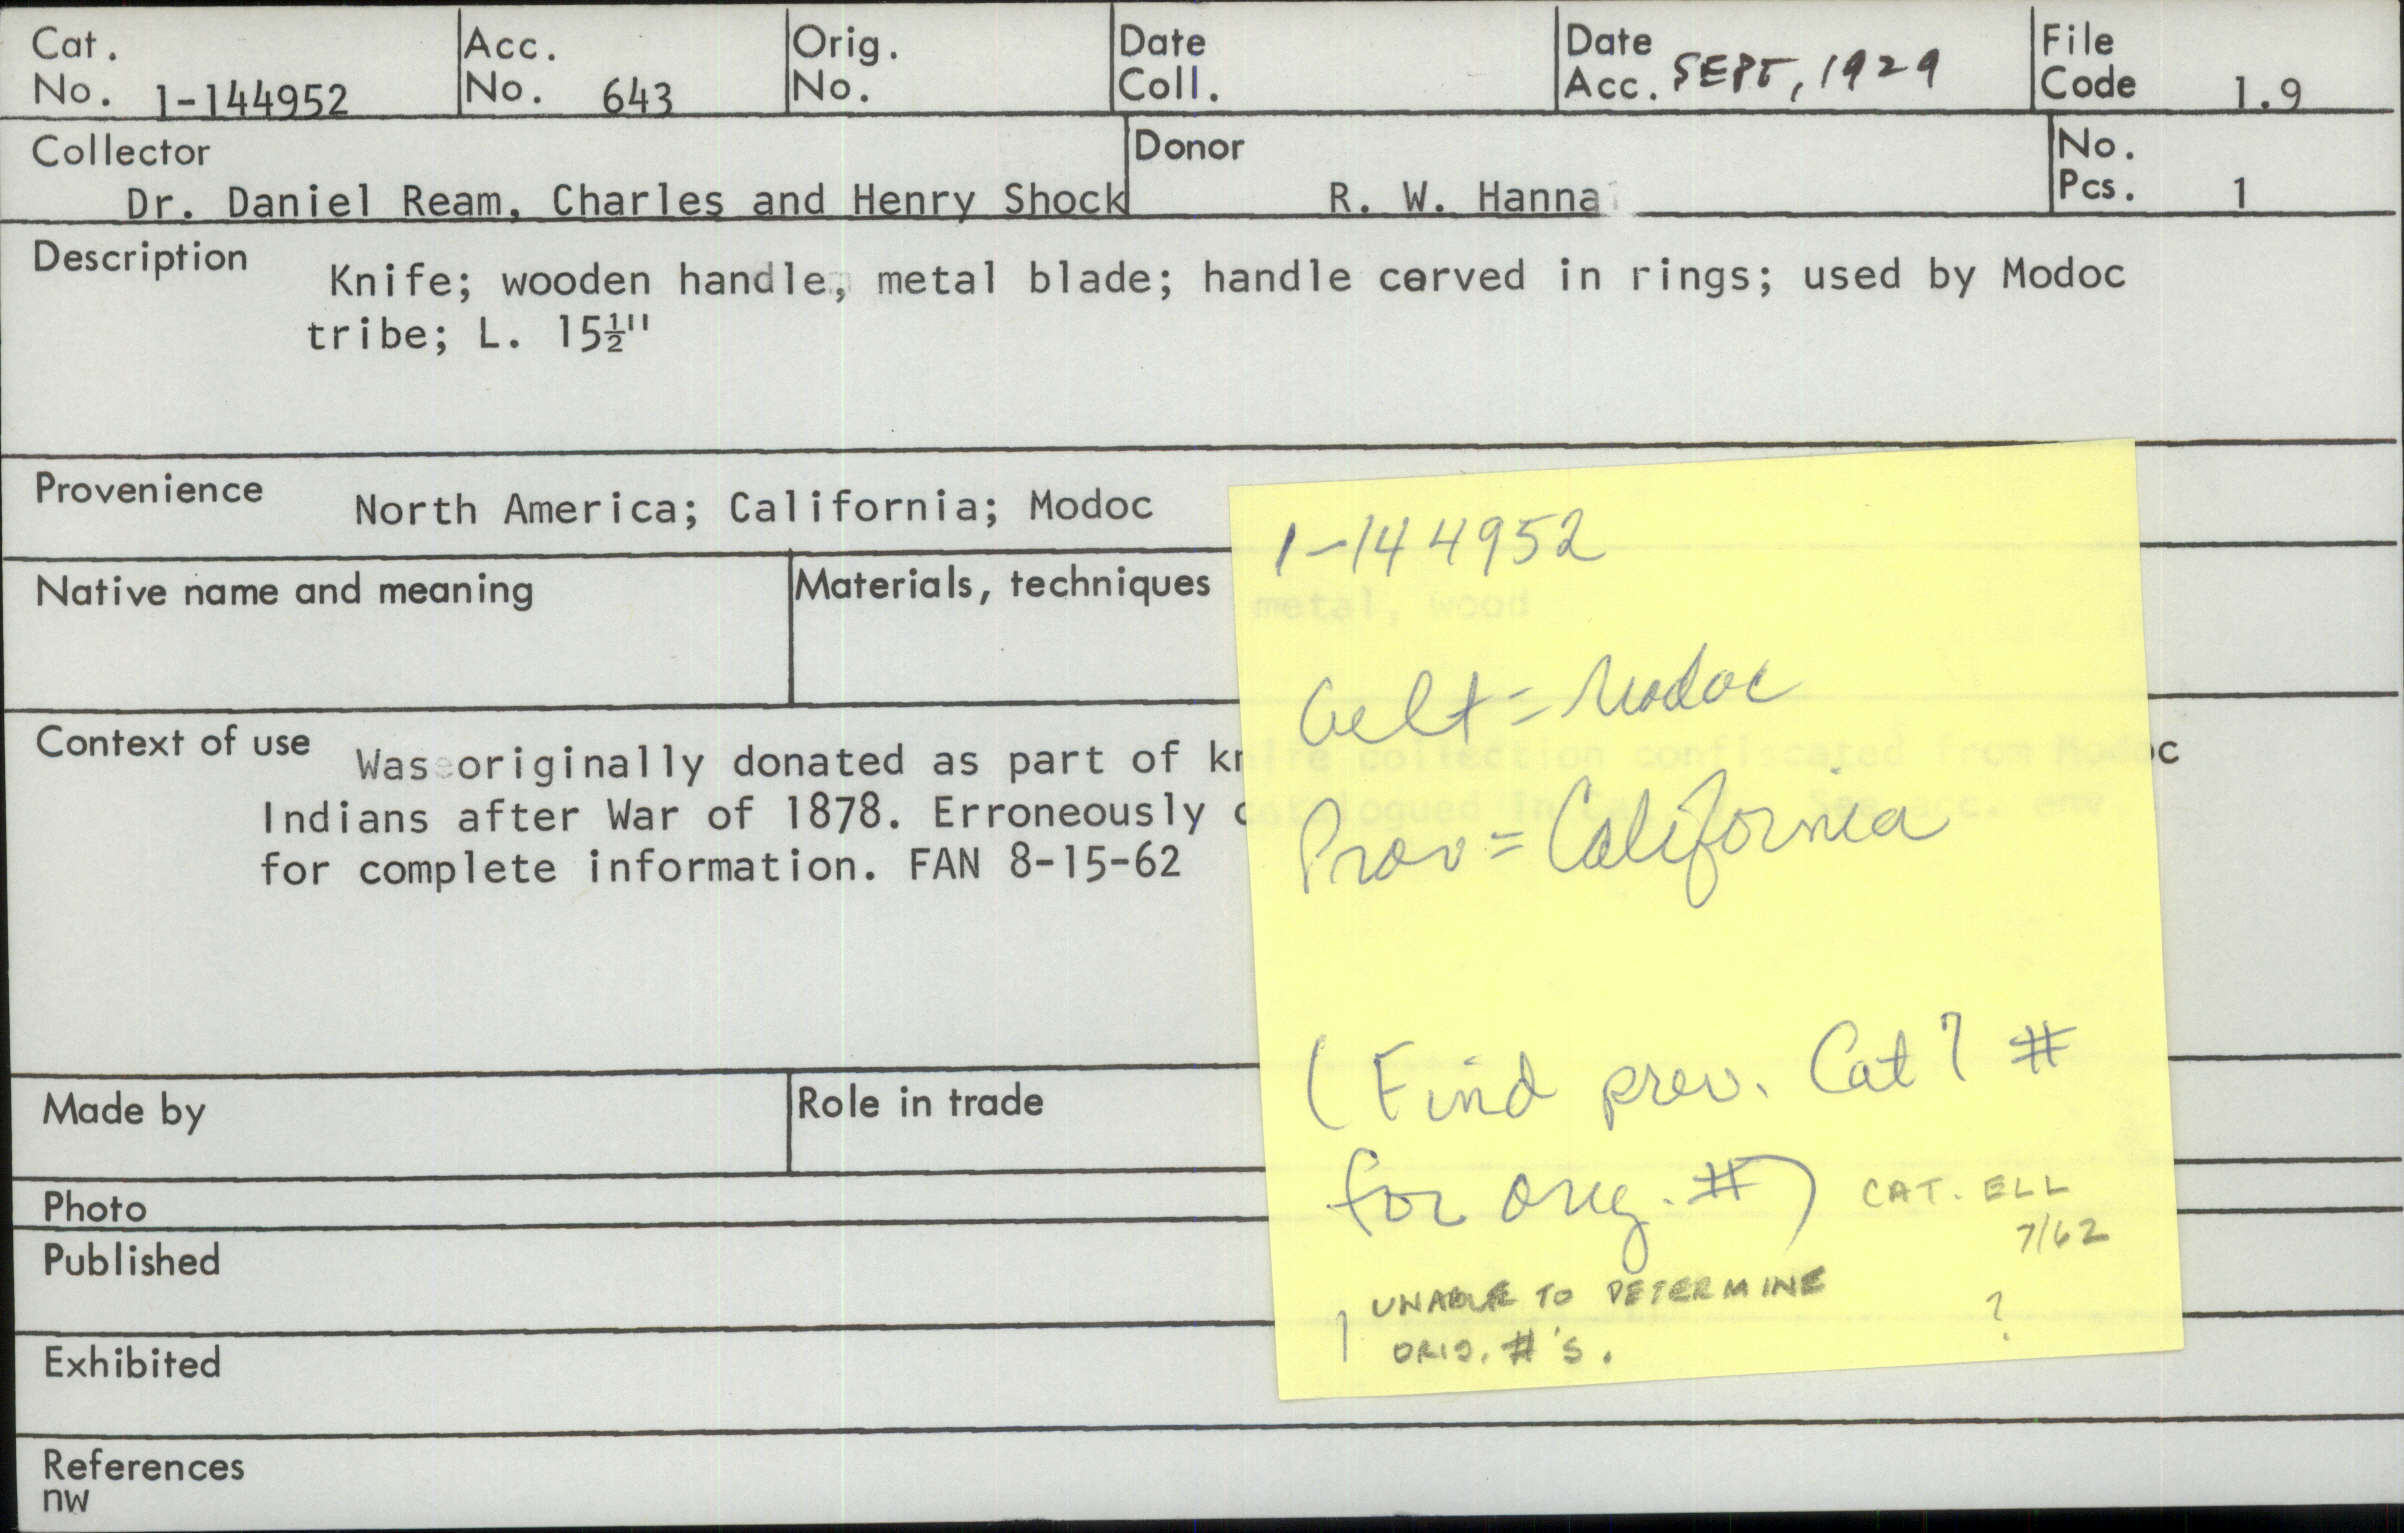 Cat. No. 1-144952
Acc. No. 643
Orig. No.
Date Coll.
Date Acc. SEPT, 1929
File Code 1.9
Collector
Dr. Daniel Ream, Charles and Henry Shock
Donor
R. W. Hanna
No. Pcs. 1
Description Knife; wooden handle, metal blade; handle carved in rings; used by Modoc
tribe; L. 15½"
Provenience North America; California; Modoc
Native name and meaning
Materials, techniques metal, wood
Context of use Was originally donated as part of knife collection confiscated from Modoc
Indians after War of 1878. Erroneously catalogued in See acc. env
for complete information. FAN 8-15-62
Made by
Role in trade
Photo
Published
Exhibited
References
nw
1-144952
Cult = Modoc
Prov = California
(Find prev. Cat? #
for orig. #)
CAT. ELL
7/62
?
UNABLE TO DETERMINE
ORIG. #'S.